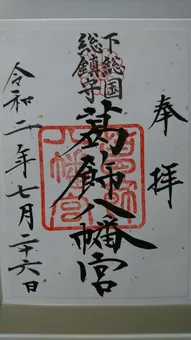 奉拝
下総国
総鎮守
葛飾八幡宮
令和二年七月二十六日